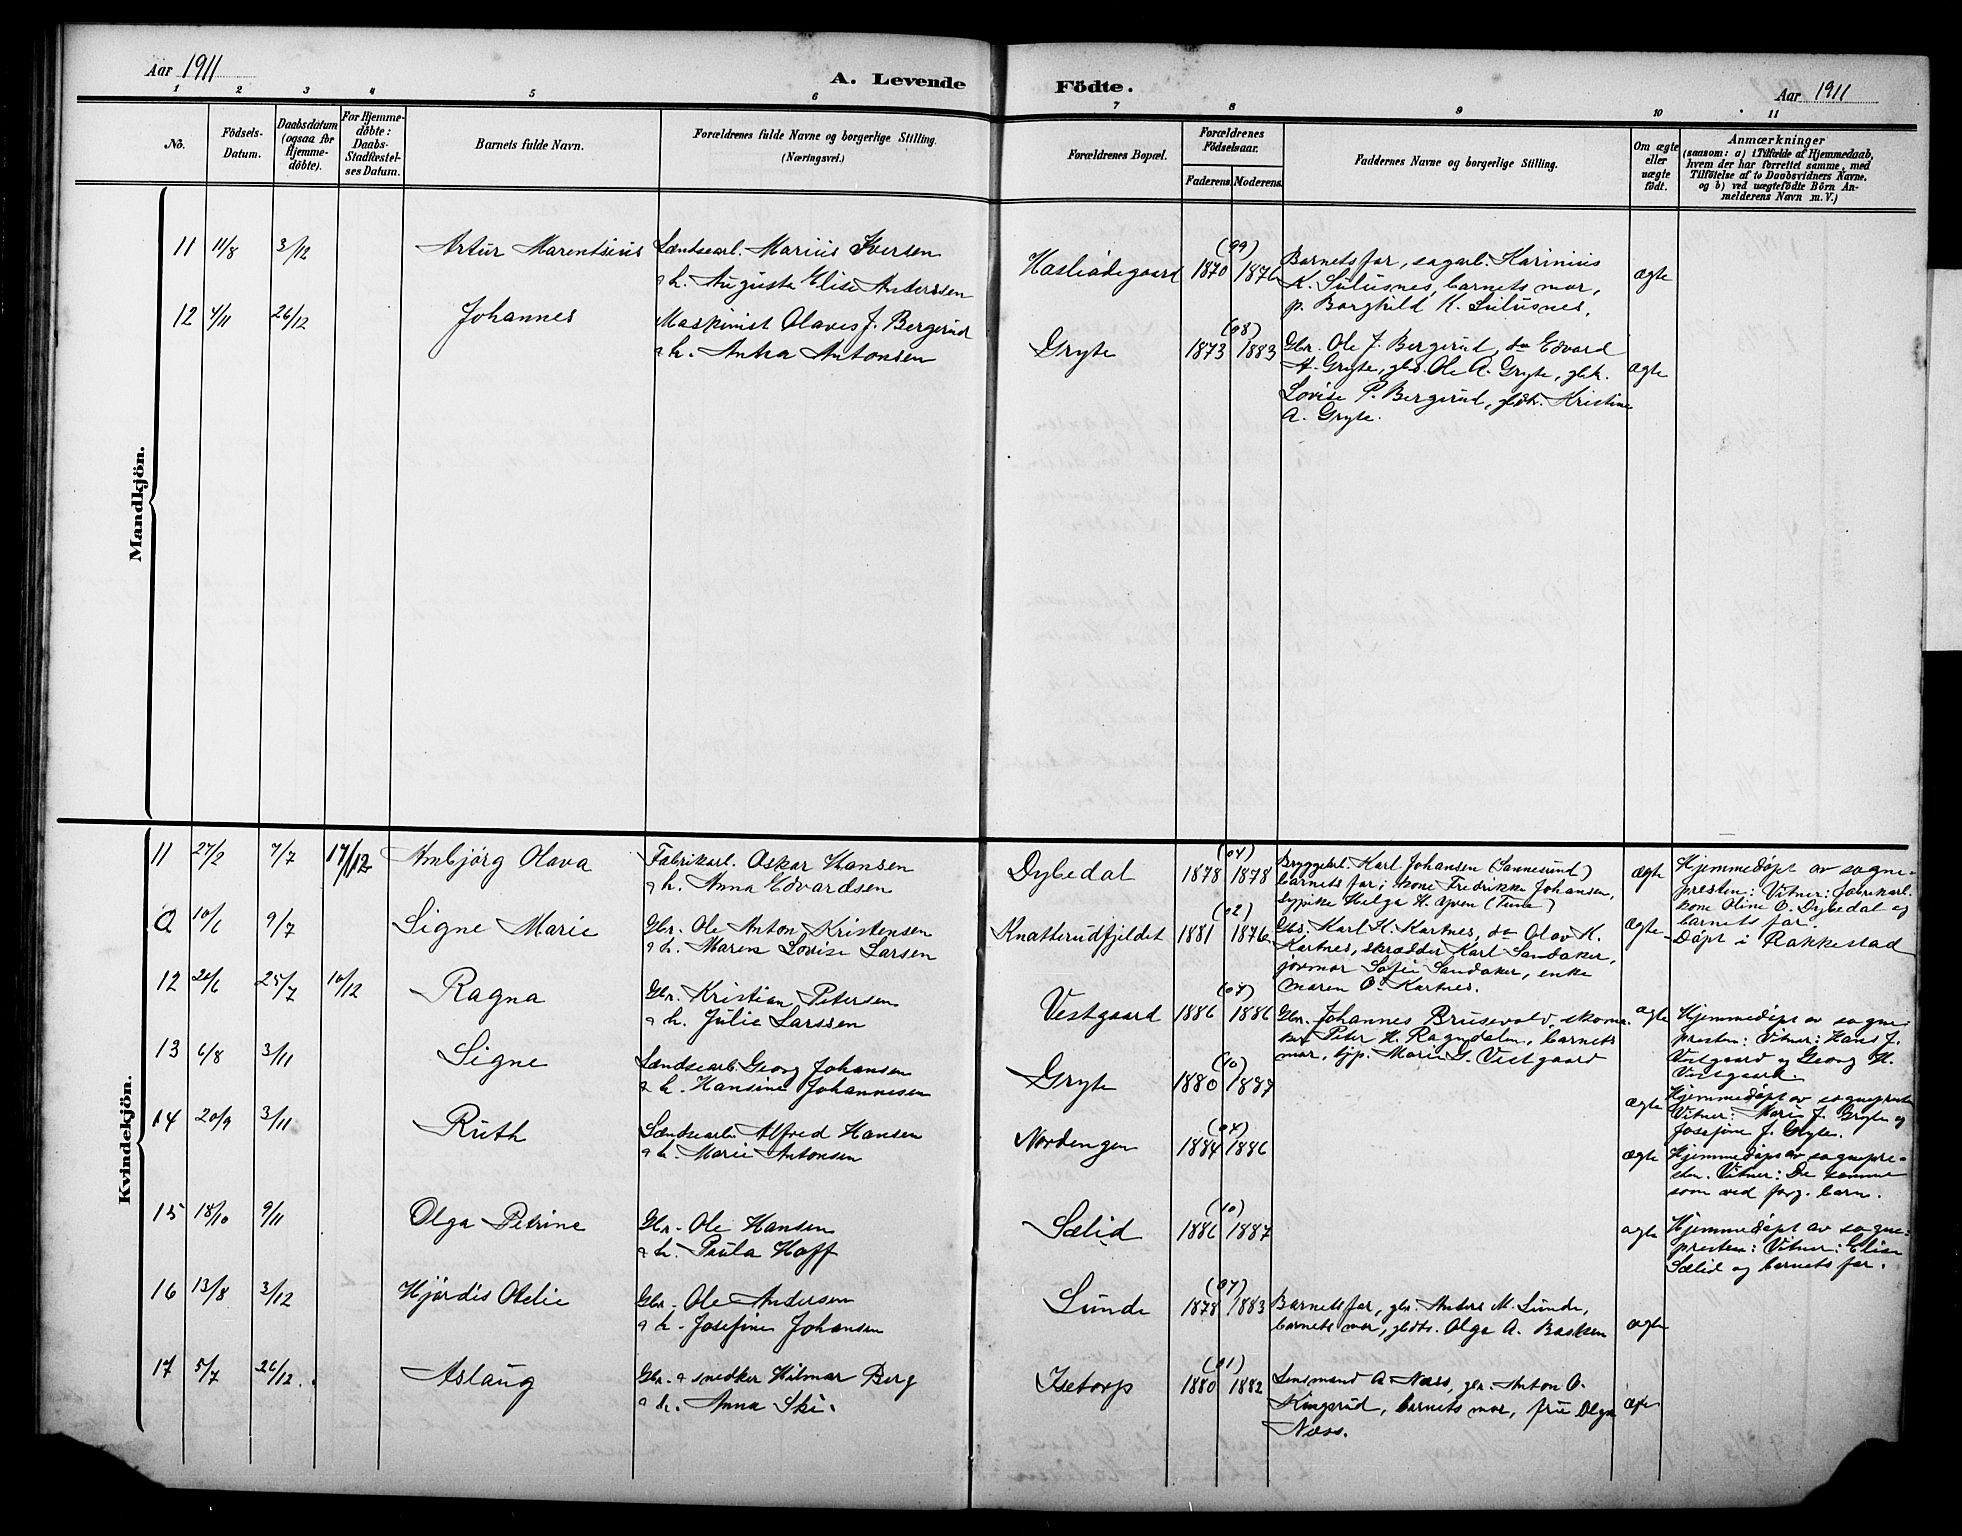 Aar 1911
A. Levende
Födte.
Aar 1911
1 2 3 4 5 6 7 8 9 10 11
No.
Födsels-Datum.
Daabsdatum (ogsaa for Hjemme-döbte).
For Hjemme-döbte: Daabs-Stadfæstel-ses Datum.
Barnets fulde Navn.
Forældrenes fulde Navne og borgerlige Stilling.
(Næringsvei.)
Forældrenes Bopæl.
Forældrenes Födselsaar.
Faderens. Moderens.
Faddernes Navne og borgerlige Stilling.
Om ægte eller uægte født.
Anmærkninger
(saasom: a) i Tilfælde af Hjemmedaab,
hvem der har forrettet samme, med
Tilföielse af to Daabsvidners Navne,
og b) ved uægtefödte Börn An-
melderens Navn m. V.)
Mandkjön.
11 11/8 3/12 Artur Marentsius Lændsearb. Marius Iversen
o h. Augusta Elise Anderssen
(99)
1870 1876
Barnets far, sagarb. Karinius
K. Sulusnes, barnets mor,
p. Borghild K. Sulusnes.
ægte
12 4/11 26/12 Johannes Maskinist Olaves J. Bergerud
o h. Anna Antonsen
Gryte
(08)
1873 1883
Gbr. Ole J. Bergerud, do Edvard
A. Gryte, gbs. Ole A. Gryte, gbk.
Lovise P. Bergerud, gbdtr. Kristine
A. Gryte.
ægte
Kvindekjön.
11 27/2 7/7 17/12 Ambjörg Olava Fabrikarb. Oskar Hansen
o h. Anna Edvardsen
Dybedal
(04)
1878 1878
Bryggearb. Karl Johansen (Sannesund)
barnets far; kone Fredrikke Johansen,
Helga H. (Tune)
ægte
Hjemmedöpt av sogne-
presten: Vitner: fabrikarb.
kone Oline O. Dybedal og
barnets far.
a 10/6 9/7 Signe Marie Gbr. Ole Anton Kristensen
o h. Maren Lovise Larsen
Knatterudfjeldet
(02)
1881 1876
Gbs. Karl H. Kartnes, do Olav K.
Kartnes, skrædder Karl Sandaker,
jormor Sofie Sandaker, enke
Maren O. Kartnes.
ægte
Döpt i Rakkestad
12 24/6 25/7 10/12 Ragna Gbr. Kristian Petersen
o h. Julie Larssen
Vestgaard
(07)
1886 1886
Gbr. Johannes Brusevold, skoma-
ker Peter H. Ragndalen, barnets
mor, Marie G. Vestgaard
ægte
Hjemmedöpt av sogne-
presten: Vitner: Hans J.
Vestgaard og Georg H.
Vestgaard.
13 6/8 3/11 Signe Lændsearb. Georg Johansen
o h. Hansine Johannesen
Gryte
(10)
1880 1887
ægte
Hjemmedöpt av sogneprsten
Vitner: Marie J. Gryte og
Josefine J. Gryte.
14 20/9 3/11 Ruth Lændsearb. Alfred Hansen
o h. Marie Antonsen
Nordengen
(04)
1884 1886
ægte
Hjemmedöpt av sognepre-
sten. Vitner: De samme
som ved forg. barn.
15 18/10 9/11 Olga Petrine Gbr. Ole Hansen
o h. Paula Hoff
Sælid
(10)
1886 1887
ægte
Hjemmedöpt av sogne-
presten: Vitner: Elise
Sælid og barnets far.
16 13/8 3/12 Hjördis Otelie Gbr. Ole Andersen
o h. Josefine Johansen
Lunde
(07)
1878 1883
Barnets far, gbr. Anders M. Lunde,
barnets mor, gbdtr. Olga A. Basksen
ægte
17 5/7 26/12 Aslaug Gbr. o snedker Hilmar Berg
o h. Anna Ski.
Isetorp
(01)
1880 1882
Lensmand A. Næss, gbr. Anton O.
Kingsrud, barnets mor, frue Olga
Næss.
ægte